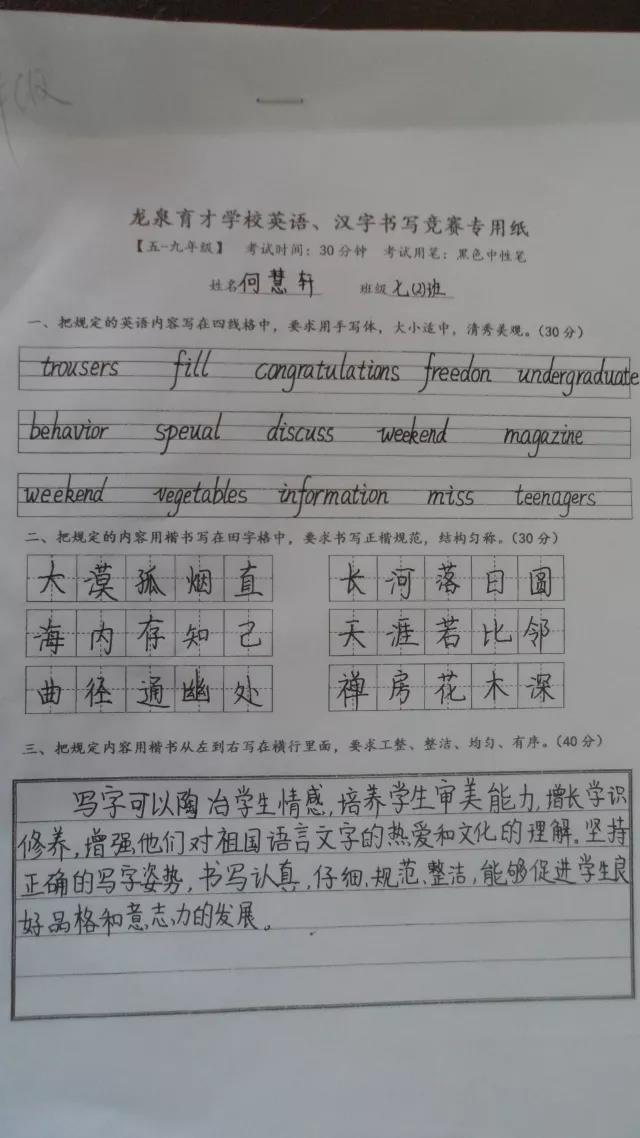 龙泉育才学校英语、汉字书写竞赛专用纸
【五-九年级】 考试时间：30分钟 考试用笔：黑色中性笔
姓名何慧轩 班级七(2)班
一、把规定的英语内容写在四线格中，要求用手写体，大小适中，清秀美观。（30分）
trousers fill congratulations freedon undergraduate
behavior speual discuss weekend magazine
weekend vegetables information miss teenagers
二、把规定的内容用楷书写在田字格中，要求书写正楷规范，结构匀称。（30分）
大漠孤烟直 长河落日圆
海内存知己 天涯若比邻
曲径通幽处 禅房花木深
三、把规定内容用楷书从左到右写在横行里面，要求工整、整洁、均匀、有序。（40分）
写字可以陶冶学生情感，培养学生审美能力，增长学识
修养，增强他们对祖国语言文字的热爱和文化的理解。坚持
正确的写字姿势，书写认真，仔细、规范、整洁，能够促进学生良
好品格和意志力的发展。